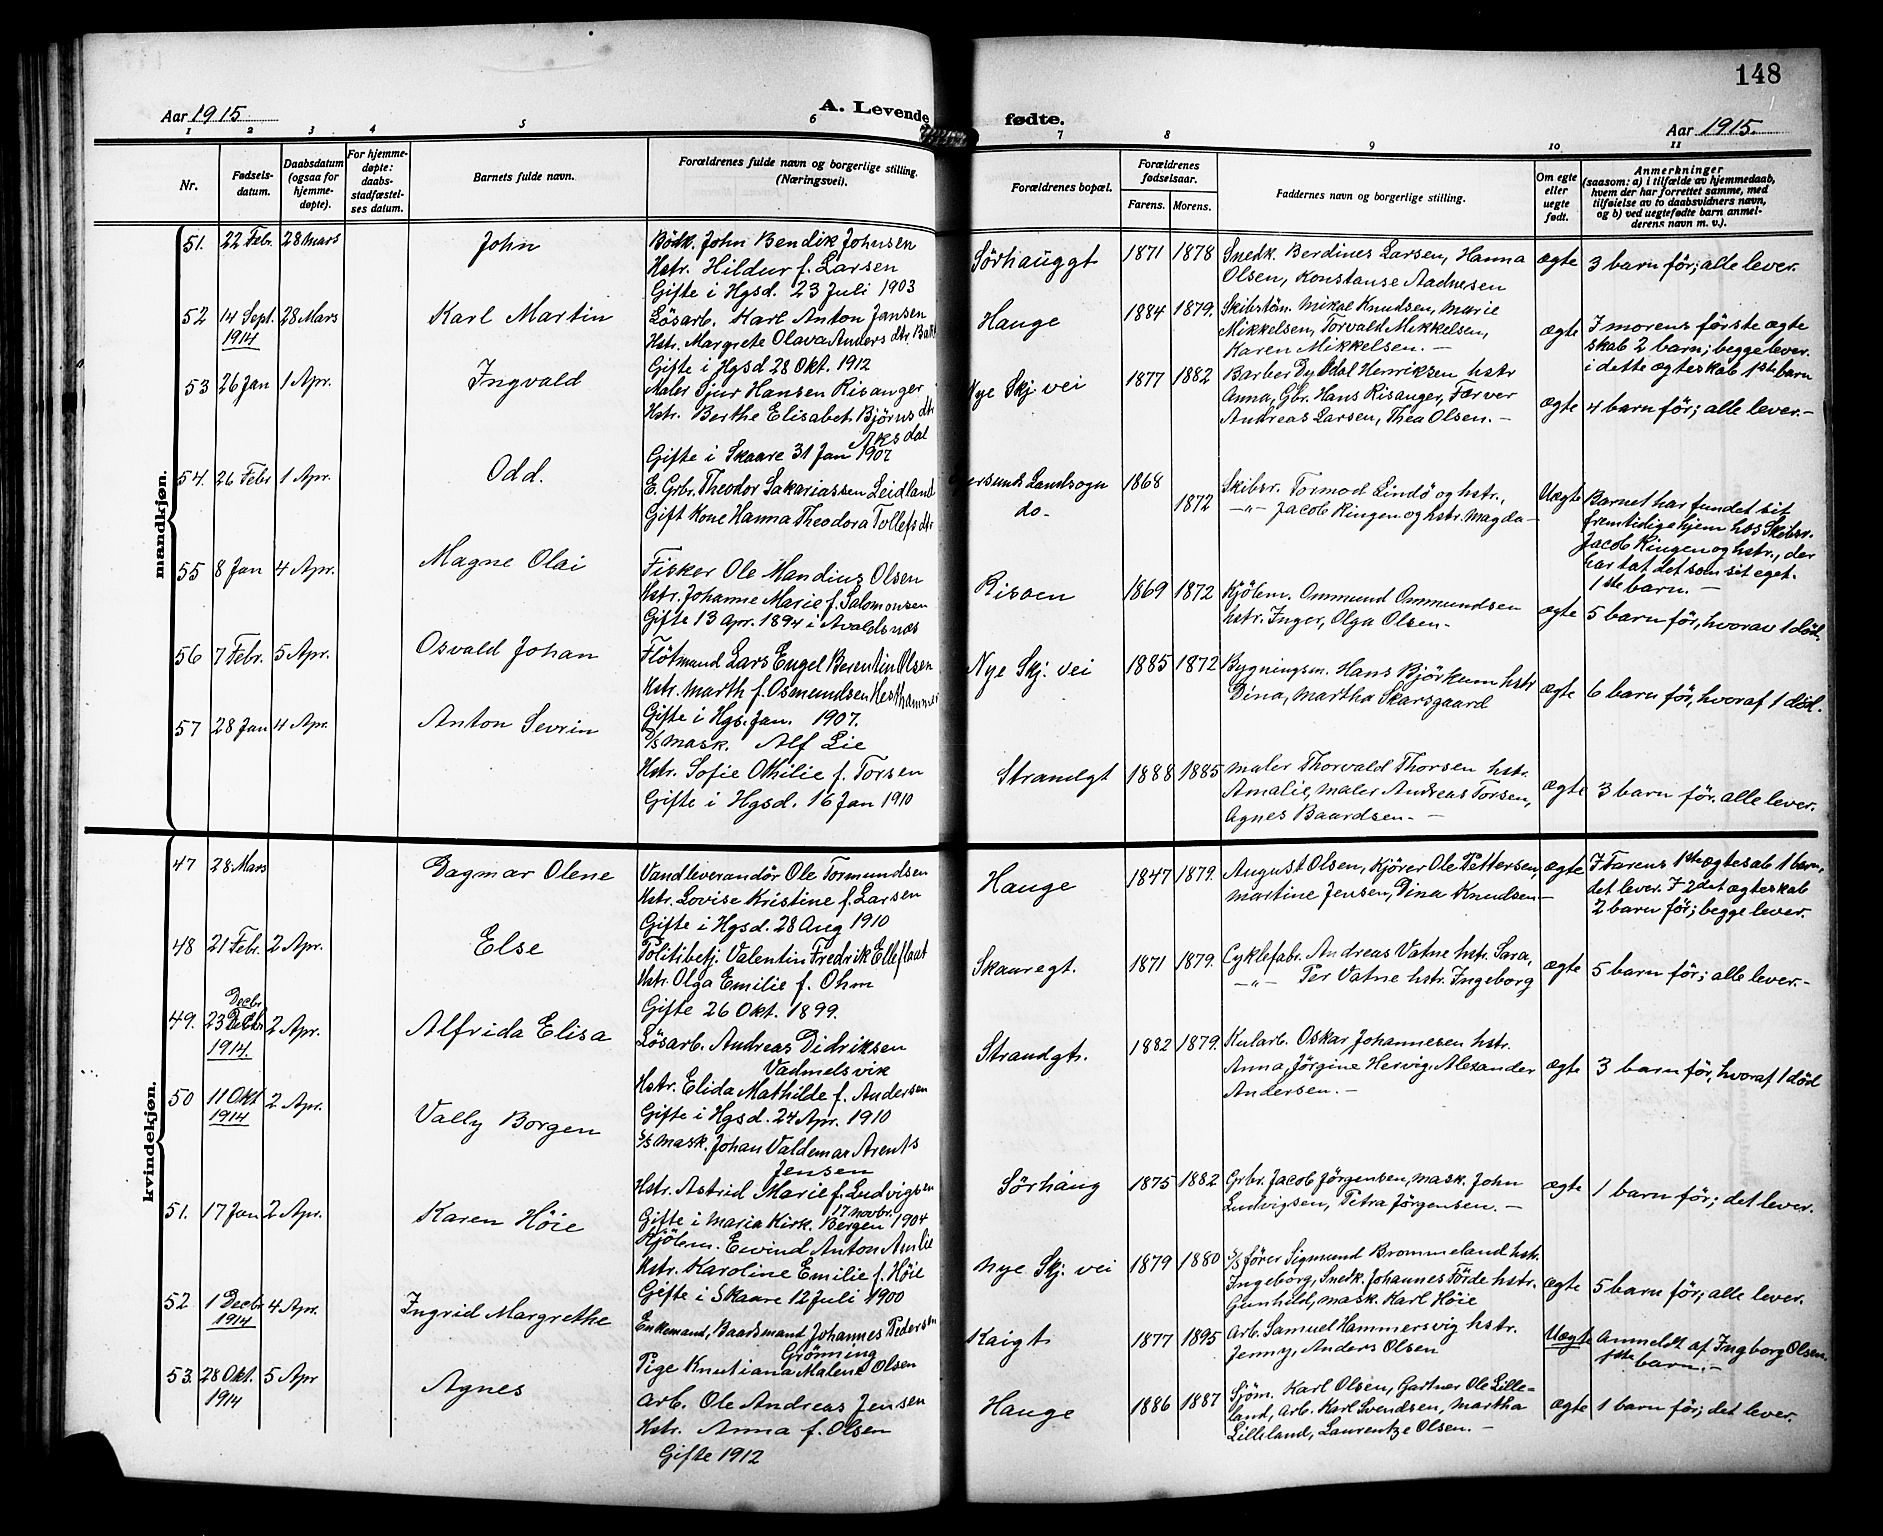 148
Aar 1915
A. Levende
fødte.
Aar 1915.
1 2 3 4 5 6 7 8 9 10 11
Nr.
Fødsels-
datum.
Daabsdatum
(ogsaa for
hjemme-
døpte).
For hjemme-
døpte:
daabs-
stadfæstel-
ses datum.
Barnets fulde navn.
Forældrenes fulde navn og borgerlige stilling.
(Næringsvei).
Forældrenes bopæl.
Forældrenes
fødselsaar.
Farens. Morens.
Faddernes navn og borgerlige stilling.
Om egte
eller
uegte
født.
Anmerkninger
(saasom: a) i tilfælde av hjemmedaab,
hvem der har forrettet samme, med
tilføielse av to daabsvidners navn,
og b) ved uegtefødte barn anmel-
derens navn m. v.).
mandkjøn.
51. 22 Febr. 28 Mars John
Bødk. John Bendik Johnsen
Hstr. Hildur f. Larsen
Gifte i Hgsd. 23 Juli 1903
Sørhauggt 1871 1878
Snedk. Berdines Larsen, Hanna
Olsen, Konstanse Aadnesen
ægte 3 barn før; alle lever.
52 14 Sept. 28 Mars Karl Martin
1914
Løsarb. Karl Anton Jansen
Hstr. Margrete Olava Anders dtr Bakk
Gifte i Hgsd 28 Okt. 1912
Hauge 1884 1879.
Skibstøm. Mikal Knudsen, Marie
Mikkelsen, Torvald Mikkelsen,
Karen Mikkelsen. —
ægte I morens første ægte
skab 2 barn; begge lever.
i dette ægteskab 1ste barn
53 26 Jan 1 Apr. Ingvald
Maler Sjur Hansen Risanger
Hstr. Berthe Elisabet Bjørns dtr
Aksdal
Gifte i Skaare 31 Jan 1907
Nye Skj vei 1877 1882
Barber Dydal Henriksen hstr
Anna, Gbr. Hans Risanger, Færver
Andreas Larsen, Thea Olsen. —
ægte 4 barn før; alle lever. —
54. 26 Febr 1 Apr. Odd.
E. Grbr. Theodor Sakariassen Leidland
Gift Kone Hanna Theodora Tollefsdtr
ersunds Landsogn 1868
do. 1872
Skibsr. Tormod Lindø og hstr.,
—"— Jacob Ringen og hstr. Magda —
Uægte Barnet har fundet sit
fremtidige hjem hos Skibsr.
Jacob Ringen og hstr., der
har tat det som sit eget.
1ste barn. —
55 8 Jan 4 Apr. Magne Olai
Fisker Ole Mandius Olsen
Hstr. Johanne Marie f. Salomonsen
Gifte 13 Apr. 1894 i Avaldsnæs
Risøen 1869 1872
Kjølem. Ommund Ommundsen
hstr. Inger, Olga Olsen. —
ægte 5 barn før, hvorav 1 død.
56 7 Febr. 5 Apr. Osvald Johan
Fløtmand Lars Engel Berentin Olsen
Hstr. Marth f. Osmundsen Hesthammer
Gifte i Hgs. Jan. 1907.
Nye Skj. vei 1885 1872
Bygningsm. Hans Bjørkum hstr
Dina, Martha Skarsgaard
ægte 6 barn før, hvoraf 1 død.
57 28 Jan 4 Apr. Anton Sevrin
D/S mask. Alf Lie
Hstr. Sofie Othilie f. Torsen
Gifte i Hgsd. 16 Jan 1910
Strandgt 1888 1885
Maler Thorvald Thorsen hstr.
Amalie, Maler Andreas Torsen,
Agnes Baardsen. —
ægte 3 barn før. alle lever.
kvindekjøn.
47 28 Mars Dagmar Olene
Vandleverandør Ole Tormundsen
Hstr. Lovise Kristine f. Larsen
Gifte i Hgsd. 28 Aug 1910
Hauge 1847 1879.
August Olsen, Kjører Ole Pettersen,
Martine Jensen, Dina Knudsen —
ægte I Farens 1ste ægtesab 1 barn,
det lever. I 2det ægteskab
2 barn før; begge lever.
48 21 Febr. 2 Apr. Else
Politibetj. Valentin Fredrik Elleflaat
Hstr. Olga Emilie f. Ohm
Gifte 26 Okt. 1899.
Skaaregt. 1871 1879.
Cyklefabr. Andreas Vatne hstr. Sara,
—"— Per Vatne hstr. Ingeborg
ægte 5 barn før; alle lever. —
Decbr
49. 23 2 Apr. Alfrida Elisa
1914.
Løsarb. Andreas Didriksen
Vadmelsvik
Hstr. Elida Mathilde f. Andersen
Gifte i Hgsd. 24 Apr. 1910
Strandgt. 1882 1879.
Kularb. Oskar Johannesen hstr.
Anna, Jørgine Hervig, Alexander
Andersen. —
ægte 3 barn før, hvoraf 1 død
50 11 Okt 2 Apr. Vally Borgen
1914
D/S mask. Johan Valdemar Arents
Jensen
Hstr. Astrid Marie f. Ludvigsen
17 novbr.
Gifte i Maria Kirk. Bergen 1904
Sørhaug 1875 1882
Grbr. Jacob Jørgensen, mask. John
Ludvigsen, Petra Jørgensen. —
ægte 1 barn før; det lever.
51. 17 Jan 2 Apr. Karen Høie
Kjølem. Eivind Anton Amlie
Hstr. Karoline Emilie f. Høie
Gifte i Skaare 12 Juli 1900
Nye Skj. vei 1879 1880
D/S fører Sigmund Brommeland hstr.
Ingeborg, Snedk. Johannes Førde hstr.
Gunhild, mask. Karl Høie
ægte 5 barn før, alle lever.
52 1 Decbr 4 Apr. Ingrid Margrethe
1914
Enkemand, Baadsmand Johannes Pedersen
Grønning
Pige Knutiana Malene Olsen
Kaigt 1877 1895
Arb. Samuel Hammersvig hstr.
Jenny, Anders Olsen
Uægte Anmeldt af Ingborg Olsen.
1ste barn. —
53. 28 Okt. 5 Apr Agnes
1914
Arb. Ole Andreas Jensen
Hstr. Anna f. Olsen
Gifte 1912
Hauge 1886 1887
Sjøm. Karl Olsen, Gartner Ole Lille=
land, Arb. Karl Svendsen, Martha
Lilleland, Laurentze Olsen. —
ægte 1 barn før; det lever.